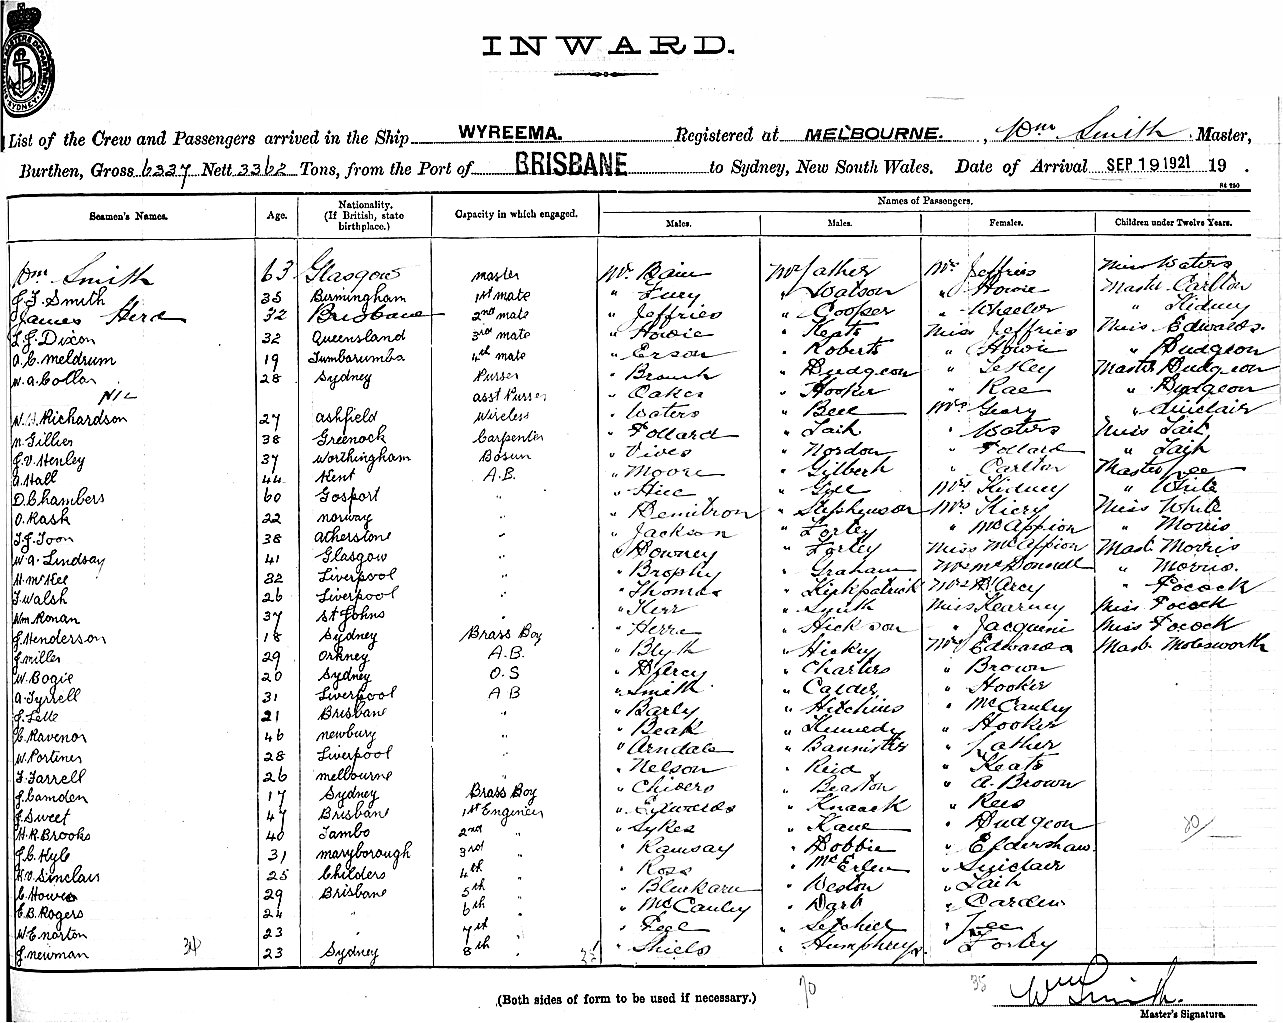 INWARD.
List of the Crew and Passengers arrived in the Ship WYREEMA. Registered at MELBOURNE. , Wm Smith . Master,
Burthen, Gross 6337 Nett 3362 Tons, from the Port of BRISBANE to Sydney, New South Wales. Date of Arrival SEP 19 1921 19 .
Seamen's Names. Age. Nationality. (If British, state birthplace.) Capacity in which engaged. Names of Passengers.
Males. Males. Females. Children under Twelve Years.
Wm Smith 63 Glasgow master Mr Bain Mr Lather Mrs Jeffries Miss Waters
J. T. Smith 35 Birmingham 1st mate " Fury " Watson " Howie Master Carlton
James Herd 32 Brisbane 2nd mate " Jeffries " Cooper " Wheeler " Kidney
Dixon 32 Queensland 3rd mate " Howie " Keats Miss Jeffries Miss Edwards
A. C. Meldrum 19 Tumbarumba 4th mate " Erson " Roberts " Howie " Dudgeon
W. A. Collar 28 Sydney Purser " " Dudgeon " Master Dudgeon
NIL asst Purser " Oakes " Hooker " Rae " Dudgeon
Richardson 27 ashfield Wireless " Waters " Bell Mrs Geary " Sinclair
N. Gillies 38 Greenock Carpenter " Pollard " Laih " Waters Miss Laih
J. V. Henley 37 Worthingham Bosun " Vives " Nordon " Pollard " Laih
A. Hall 44 Kent A.B. " Moore " Gilbert " Carlton Master Lee
D. Chambers 60 Gosport " " Hill " Gill Mrs Kidney " White
O. Rask 22 norway " " Demitron " Stephenson Mrs Kiery Miss White
Toon 38 atherstone " " Jackson " Forley " McAppion " Morris
W. A. Lindsay 41 Glasgow " " Downey " Forley Miss McAppion Mast. Morris
H. McKee 32 Liverpool " " Brophy " Graham Mrs McDonnell " Morris.
T. Walsh 26 Liverpool " " Thomas " Kirkpatrick Mrs D'Arcy " Pocock
Wm Ronan 37 St Johns " " Kerr " Miss Kearney Miss Pocock
J. Henderson 18 Sydney Brass Boy " " Hickson " Jacquine Miss Pocock
J. Miller 29 Orkney A.B. " Blyth " Hickey Mrs Edwards Mast. Molesworth
W. Bogie 20 Sydney O.S " D'Arcy " Charters " Brown
A. Tyrrell 31 Liverpool A B " Smith " Calder " Hooker
21 Brisbane " " Barly " Hitchins " McCauley
Ravenor 46 newbury " " Beak " Kennedy " Hooker
W. Portiner 28 Liverpool " " Arndale " Bannister " Lather
T. Farrell 26 melbourne " " Nelson " Reid " Keats
J. Camden 17 Sydney Brass Boy " Chivers " Beaston " A. Brown
J. Sweet 47 Brisbane 1st Engineer " Edwards " Knaack " Rees
H. R. Brooks 40 Tambo 2nd " " Sykes " Kane " Dudgeon 20
J. C. Hyle 31 maryborough 3rd " " Ramsay " Dobbie " Efdershaw.
Sinclair 25 Childers 4th " " Ross " McErlen " Sinclair
C. Howes 29 Brisbane 5th " " Blenkarn " Weston " Laih
E. B. Rogers 24 " 6th " " McCauley " Dark " Carden
W. E. Norton 23 " 7th " " Peel " Setchell " Lee
J. Newman 34 23 Sydney 8th " " Shiels " Humphreys. " Forley
(Both sides of form to be used if necessary.) 70 35 Wm Smith.
Master's Signature.